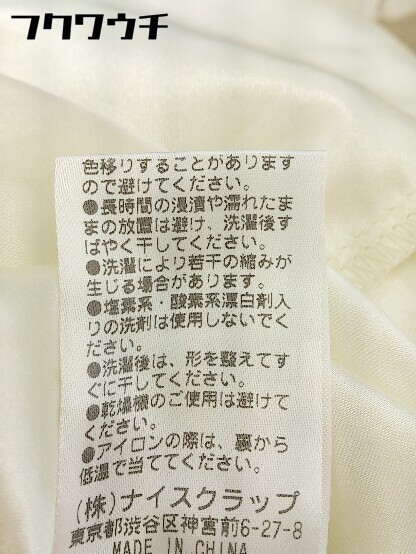 フクワウチ
色移りすることがあります
ので避けてください。
●長時間の浸漬や濡れたま
まの放置は避け、洗濯後す
ばやく干してください。
●洗濯により若干の縮みが
生じる場合があります。
●塩素系・酸素系漂白剤入
りの洗剤は使用しないでく
ださい。
●洗濯後は、形を整えてす
ぐに干してください。
●乾燥機のご使用は避けて
ください。
●アイロンの際は、裏から
低温で当ててください。
(株)ナイスクラップ
東京都渋谷区神宮前6-27-8
MADE IN CHINA